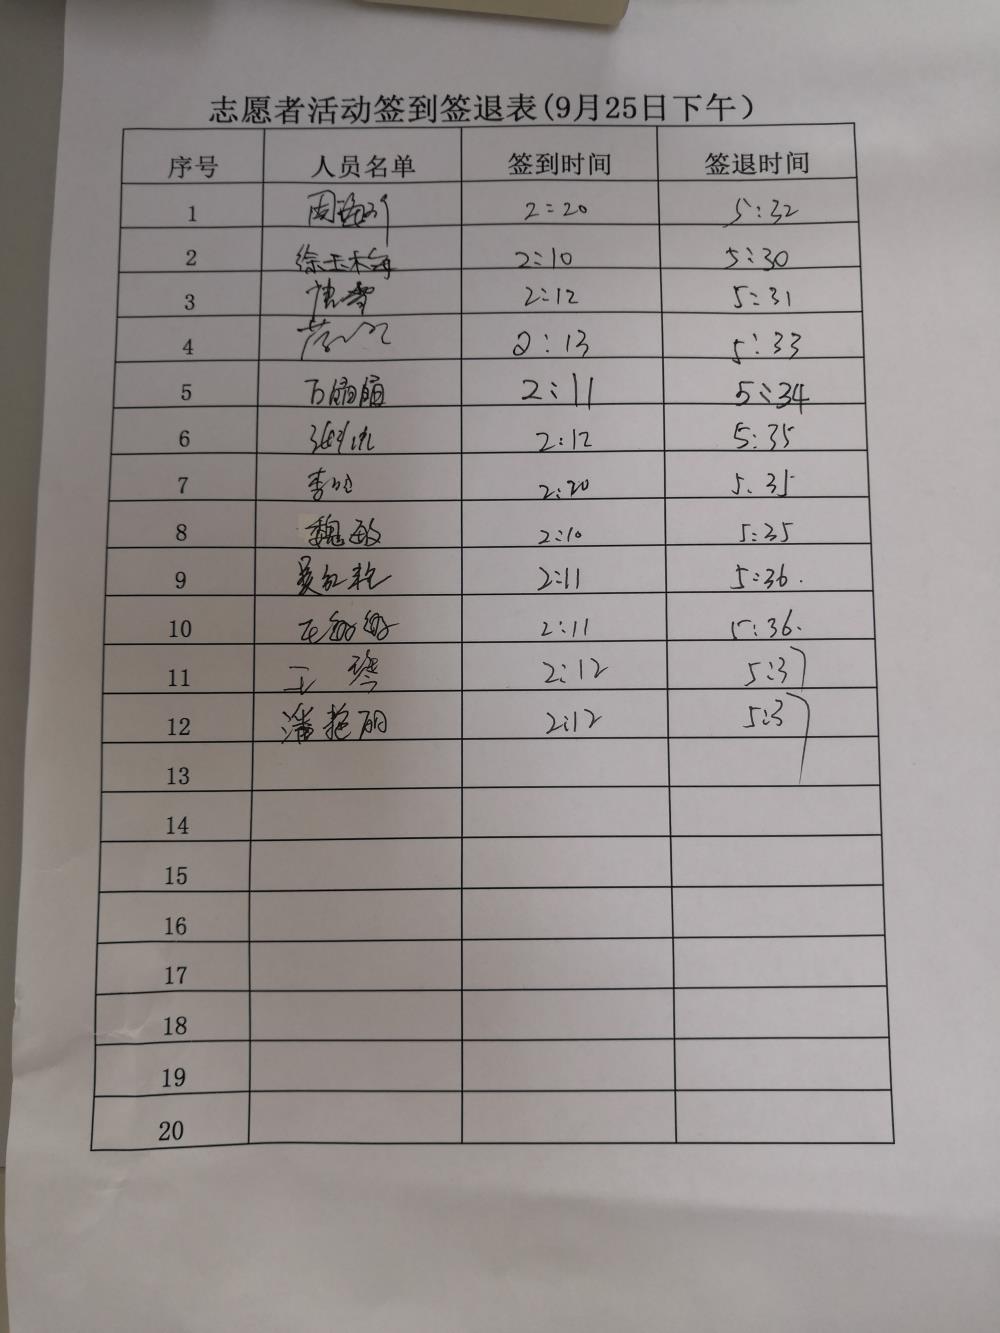 志愿者活动签到签退表(9月25日下午)
序号 人员名单 签到时间 签退时间
1 2:20 5:32
2 徐玉梅 2:10 5:30
3 2:12 5:31
4 2:13 5:33
5 2:11 5:34
6 2:12 5:35
7 2:20 5:35
8 魏敏 2:10 5:35
9 2:11 5:36.
10 2:11 5:36.
11 王琴 2:12 5:37
12 潘艳丽 2:12 5:37
13
14
15
16
17
18
19
20